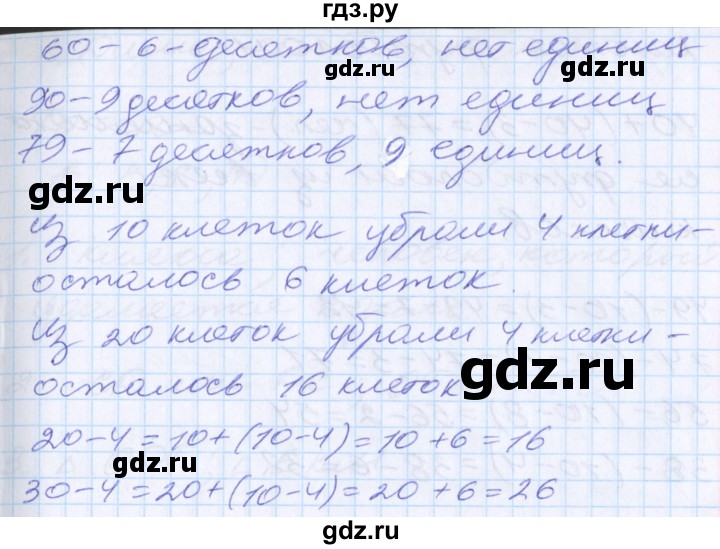 гдз.ру
60 – 6 – десятков, нет единиц
90 – 9 десятков, нет единиц
79 – 7 десятков, 9 единиц.
gdz.ru
gdz.ru
gdz.ru
Из 10 клеток убрали 4 клетки –
gdz.ru
gdz.ru
осталось 6 клеток.
Из 20 клеток убрали 4 клетки –
gdz.ru
осталось 16 клеток
gdz.ru
20 – 4 = 10 + (10 – 4) = 10 + 6 = 16
gdz.ru
gdz.ru
30 – 4 = 20 + (10 – 4) = 20 + 6 = 26
gdz.ru